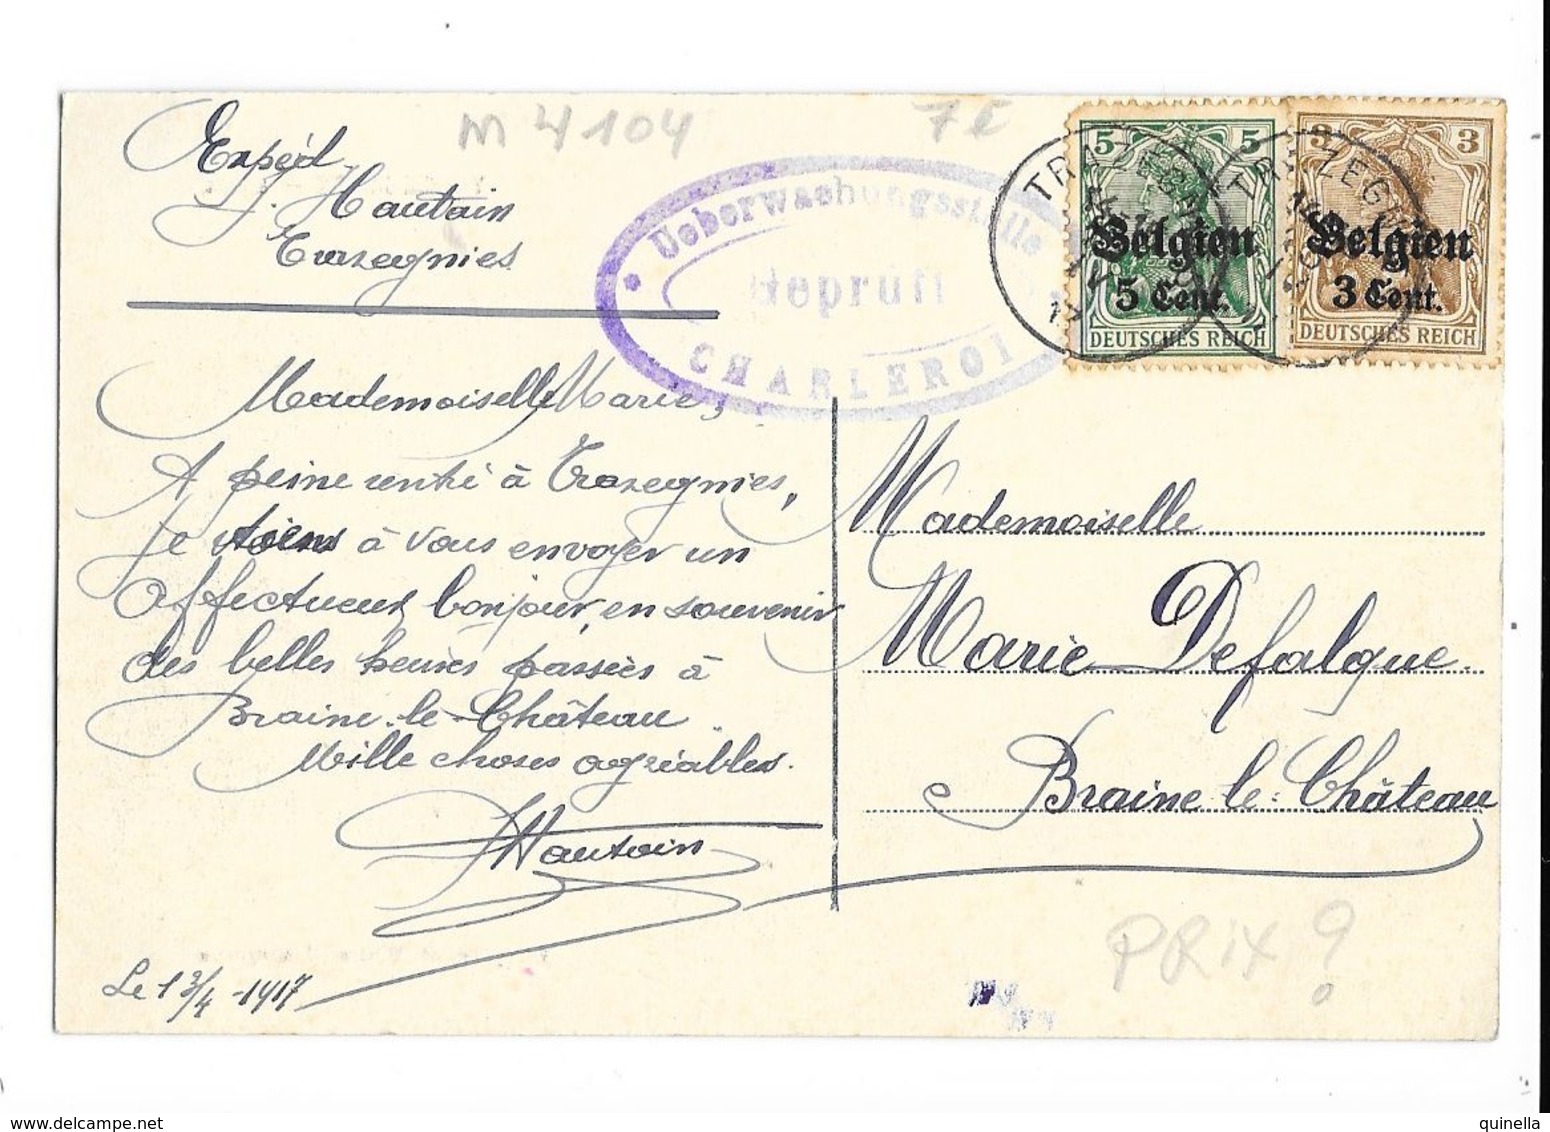 m 4104
7€
Expéd
J. Hautain
Trazegnies
* Ueberwachungsstelle
Geprüft
CHARLEROI
TRAZEGNIES
TRAZEGNIES
5 5
Belgien
5 Cent.
DEUTSCHES REICH
3 3
Belgien
3 Cent.
DEUTSCHES REICH
Mademoiselle Marie,
A peine rentré à Trazegnies,
je tiens à vous envoyer un
affectueux bonjour, en souvenir
des belles heures passées à
Braine-le-Château.
Mille choses agréables.
JHautain
Le 13/4-1917
Mademoiselle
Marie Defalque
Braine-le-Château
PRIX?
www.delcampe.net
quinella